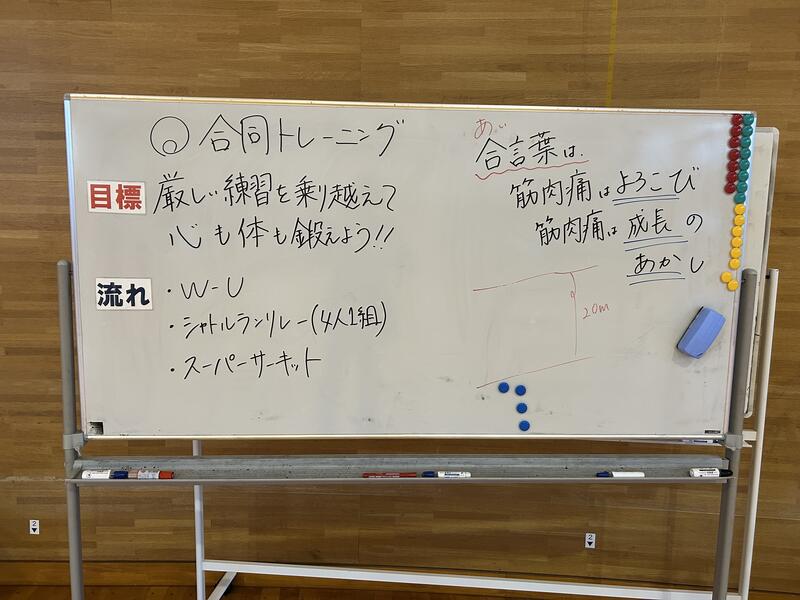 合同トレーニング
目標
厳しい練習を乗り越えて
心も体も鍛えよう!!
流れ
・W-U
・シャトルランリレー(4人1組)
・スーパーサーキット
合言葉は、
筋肉痛はよろこび
筋肉痛は成長の
あかし
20m
2
2